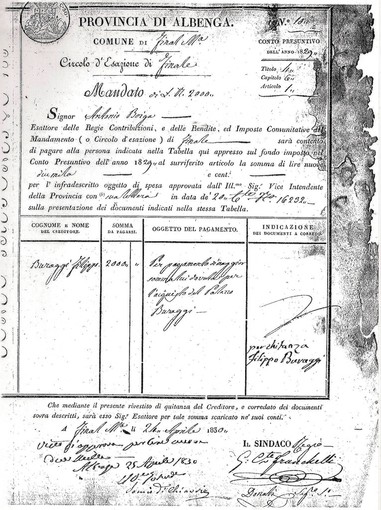 PROVINCIA DI ALBENGA.
COMUNE DI Final Mna
Circolo d'Esazione di Finale
Mandato di £. N. 2000
CONTO PRESUNTIVO
DELL'ANNO 1829
Titolo
Capitolo
Articolo
Signor Antonio Borga
Esattore delle Regie Contribuzioni, e delle Rendite, ed Imposte Comunitative del
Mandamento (o Circolo d'esazione) di Finale sarà contento
di pagare alla persona indicata nella Tabella qui appresso sul fondo imposto nel
Conto Presuntivo dell'anno 1829 al surriferito articolo la somma di lire nuove
due mila e cent.
per l'infradescritto oggetto di spesa approvata dall'Ill.mo Sig. Vice Intendente
della Provincia con sua lettera in data de' 20 N.o 16232
sulla presentazione dei documenti indicati nella stessa Tabella.
COGNOME e NOME DEL CREDITORE.
SOMMA DA PAGARSI.
OGGETTO DEL PAGAMENTO.
INDICAZIONE DEI DOCUMENTI A CORREDO
Buraggi Filippo
2000
Per pagamento di maggior
somma lui dovuta per
l'acquisto del Palazzo
Buraggi
per chitanza
Filippo Buraggi
Che mediante il presente rivestito di quitanza del Creditore, e corredato dei documenti
sovra descritti, sarà esso Sig. Esattore per tale somma scaricato ne' suoi conti.
A Final Mna li 24 Aprile 1830
Visto
25 Aprile 1830
IL SINDACO